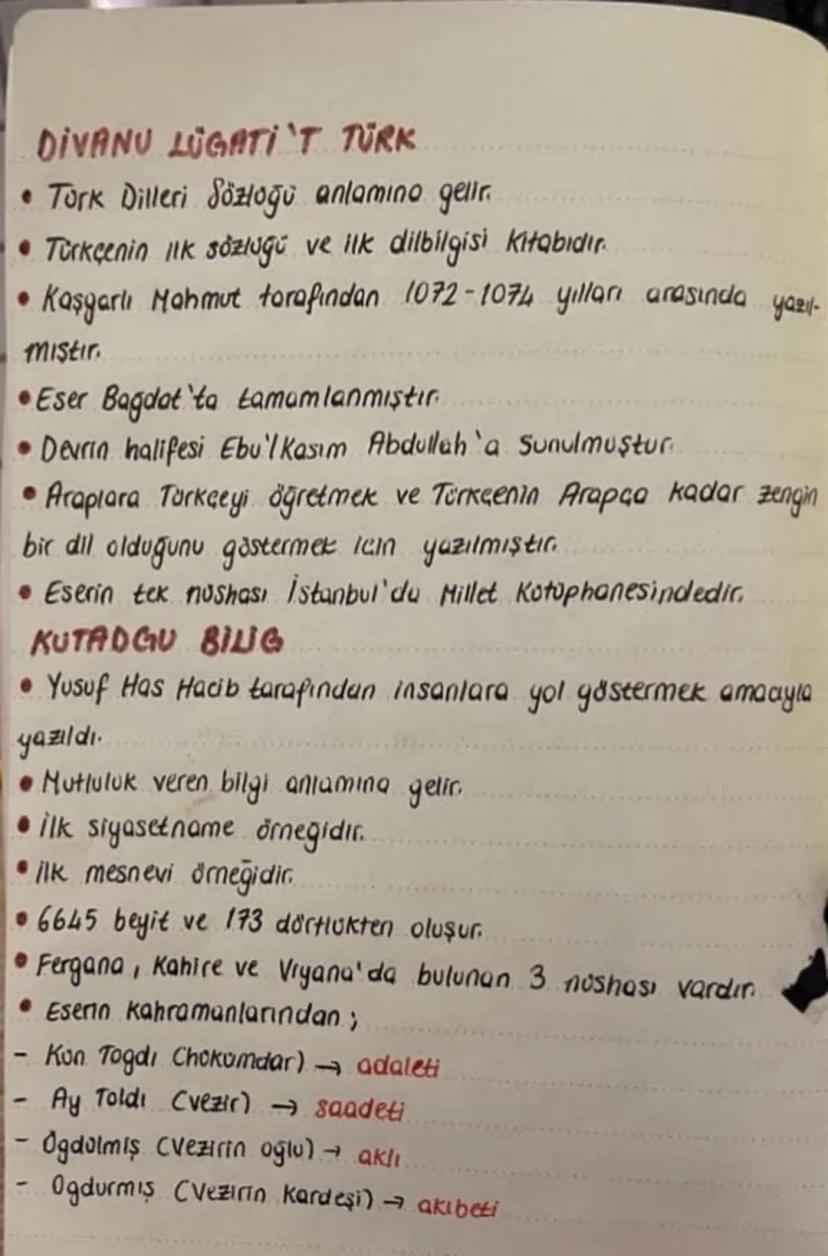 DİVANU LÜGATİ'T TÜRK
• Türk Dilleri Sözlüğü anlamına gelir.
• Türkçenin ilk sözlüğü ve ilk dilbilgisi kitabıdır.
• Kaşgarlı Mahmut tarafından 1072-1074 yılları arasında yazıl-
mıştır.
• Eser Bagdat'ta tamamlanmıştır.
• Devrin halifesi Ebu'l Kasım Abdullah'a sunulmuştur.
• Araplara Türkçeyi öğretmek ve Türkçenin Arapça kadar zengin
bir dil olduğunu göstermek için yazılmıştır.
• Eserin tek nüshası İstanbul'da Millet Kütüphanesindedir.
KUTADGU BİLİG
• Yusuf Has Hacib tarafından insanlara yol göstermek amacıyla
yazıldı.
• Mutluluk veren bilgi anlamına gelir.
• İlk siyasetname örneğidir.
• İlk mesnevi örneğidir.
• 6645 beyit ve 173 dörtlükten oluşur.
• Fergana, Kahire ve Viyana'da bulunan 3 nüshası vardır.
• Eserin kahramanlarından;
- Kün Togdı (hükümdar) → adaleti
- Ay Toldı (vezir) → saadeti
- Ögdülmiş (vezirin oğlu) → aklı
- Odgurmış (vezirin kardeşi) → akıbeti